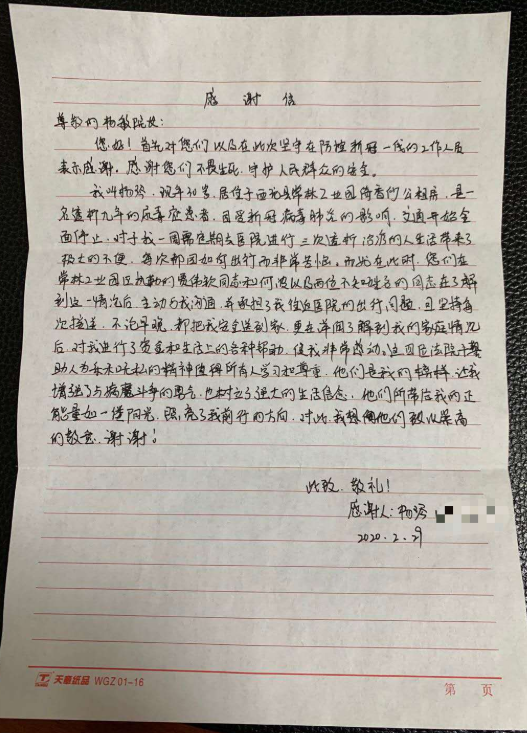 感 谢 信
尊敬的杨敏院长：
您好！首先对您们以及在此次坚守在防控新冠一线的工作人员
表示感谢。感谢您们不畏生死，守护人民群众的安全。
我叫杨琴，现年30岁，居住于西北县常林工业园倚香竹公租房，是一
名透析九年的尿毒症患者，因受新冠病毒肺炎的影响，交通开始全
面停止，对于我一周需定期去医院进行三次透析治疗的人生活带来了
极大的不便，每次都因如何出行而非常苦恼。而就在此时，您们在
常林工业园区执勤的 同志和何波以及两位不知姓名的同志在了解
到这一情况后，主动与我沟通，并承担了我往返医院的出行问题，且坚持每
次接送，不论早晚，都把我安全送到家，更在详细了解到我的家庭情况
后，对我进行了资金和生活上的各种帮助，使我非常感动。这四位法院干警
助人为乐和无私的精神值得所有人学习和尊重，他们是我的榜样，让我
增强了与病魔斗争的勇气，也树立了强大的生活信念，他们所带给我的正
能量如一缕阳光，照亮了我前行的方向，对此，我想向他们致以崇高
的敬意，谢谢！
此致、敬礼！
感谢人：杨琴
2020.2.29
天章纸品 WGZ01-16
第 页